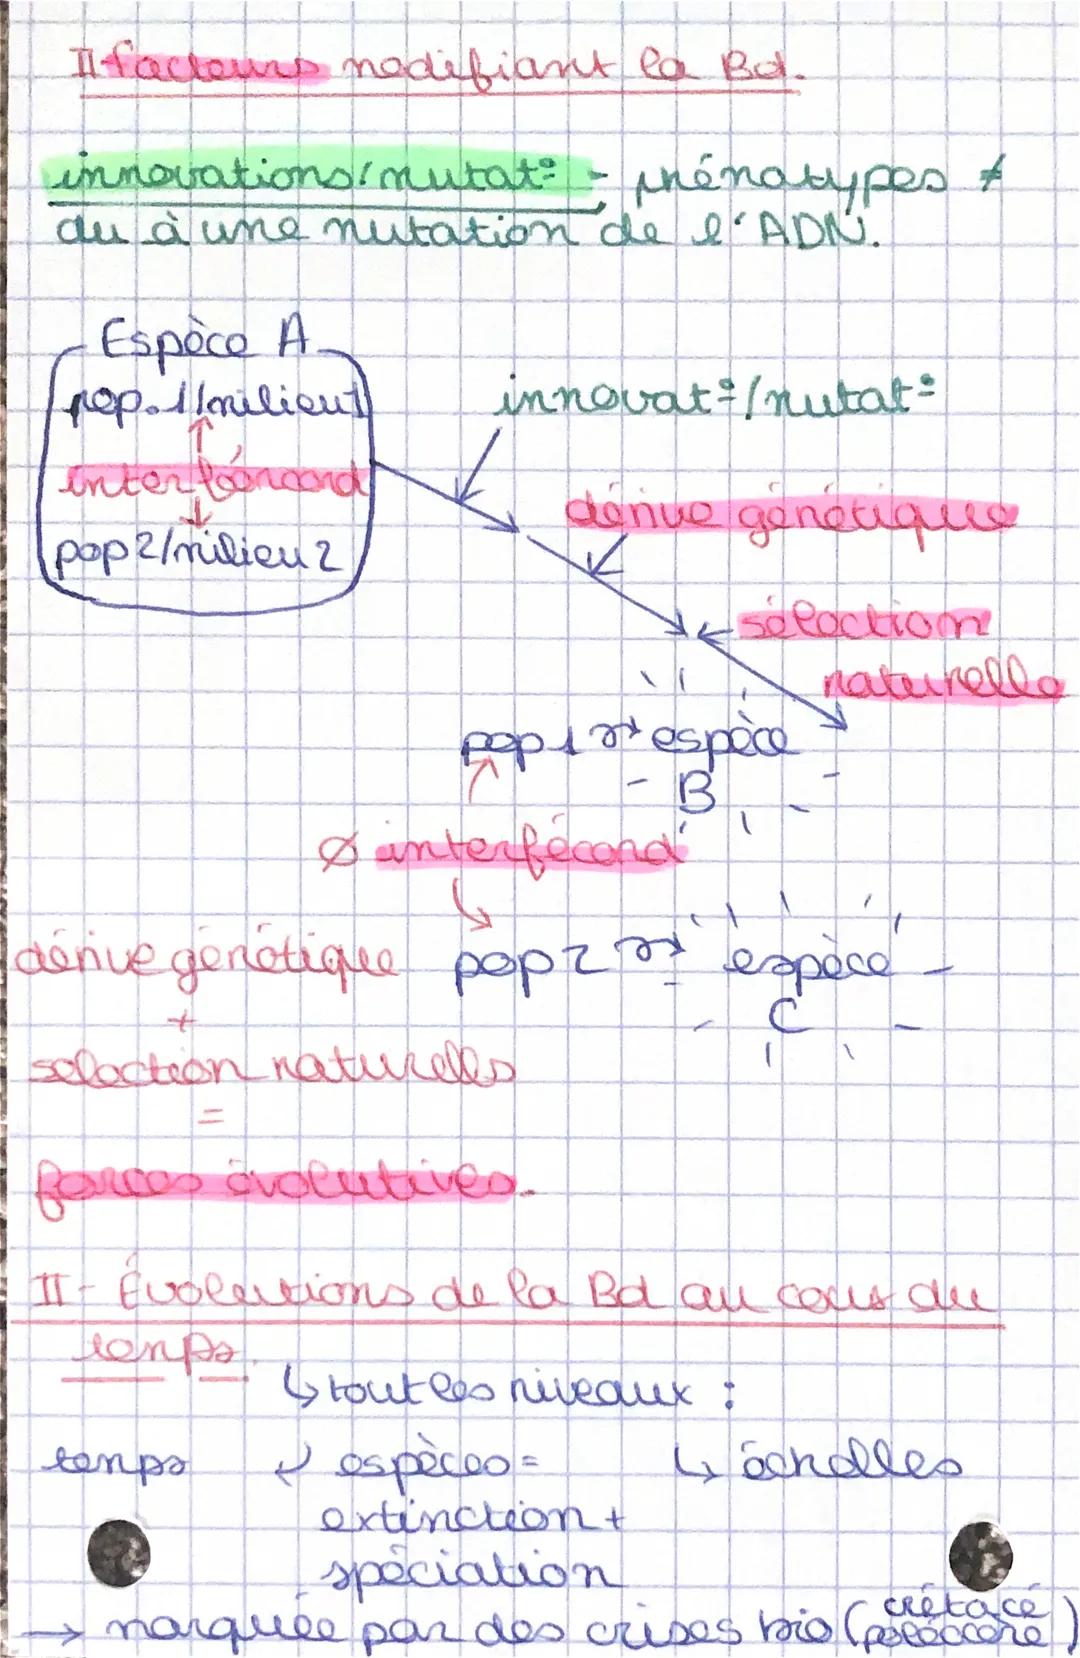 II-facteurs modifiant la Bd.
innovations/mutat° - phénotypes ≠
du à une mutation de l'ADN.
Espèce A
pop.1/milieu1
interfécond
pop2/milieu2
innovat°/mutat°
dérive génétique
sélection
naturelle
pop 1 → espèce
B
Ø interfécond
dérive génétique
pop 2 → espèce
C
+
selection naturelle
=
forces évolutives.
II- Évolutions de la Bd au cours du
temps.
↳ tout les niveaux :
temps
espèces =
↳ échelles
extinction +
spéciation
→ marquée par des crises bio (crétacé
)